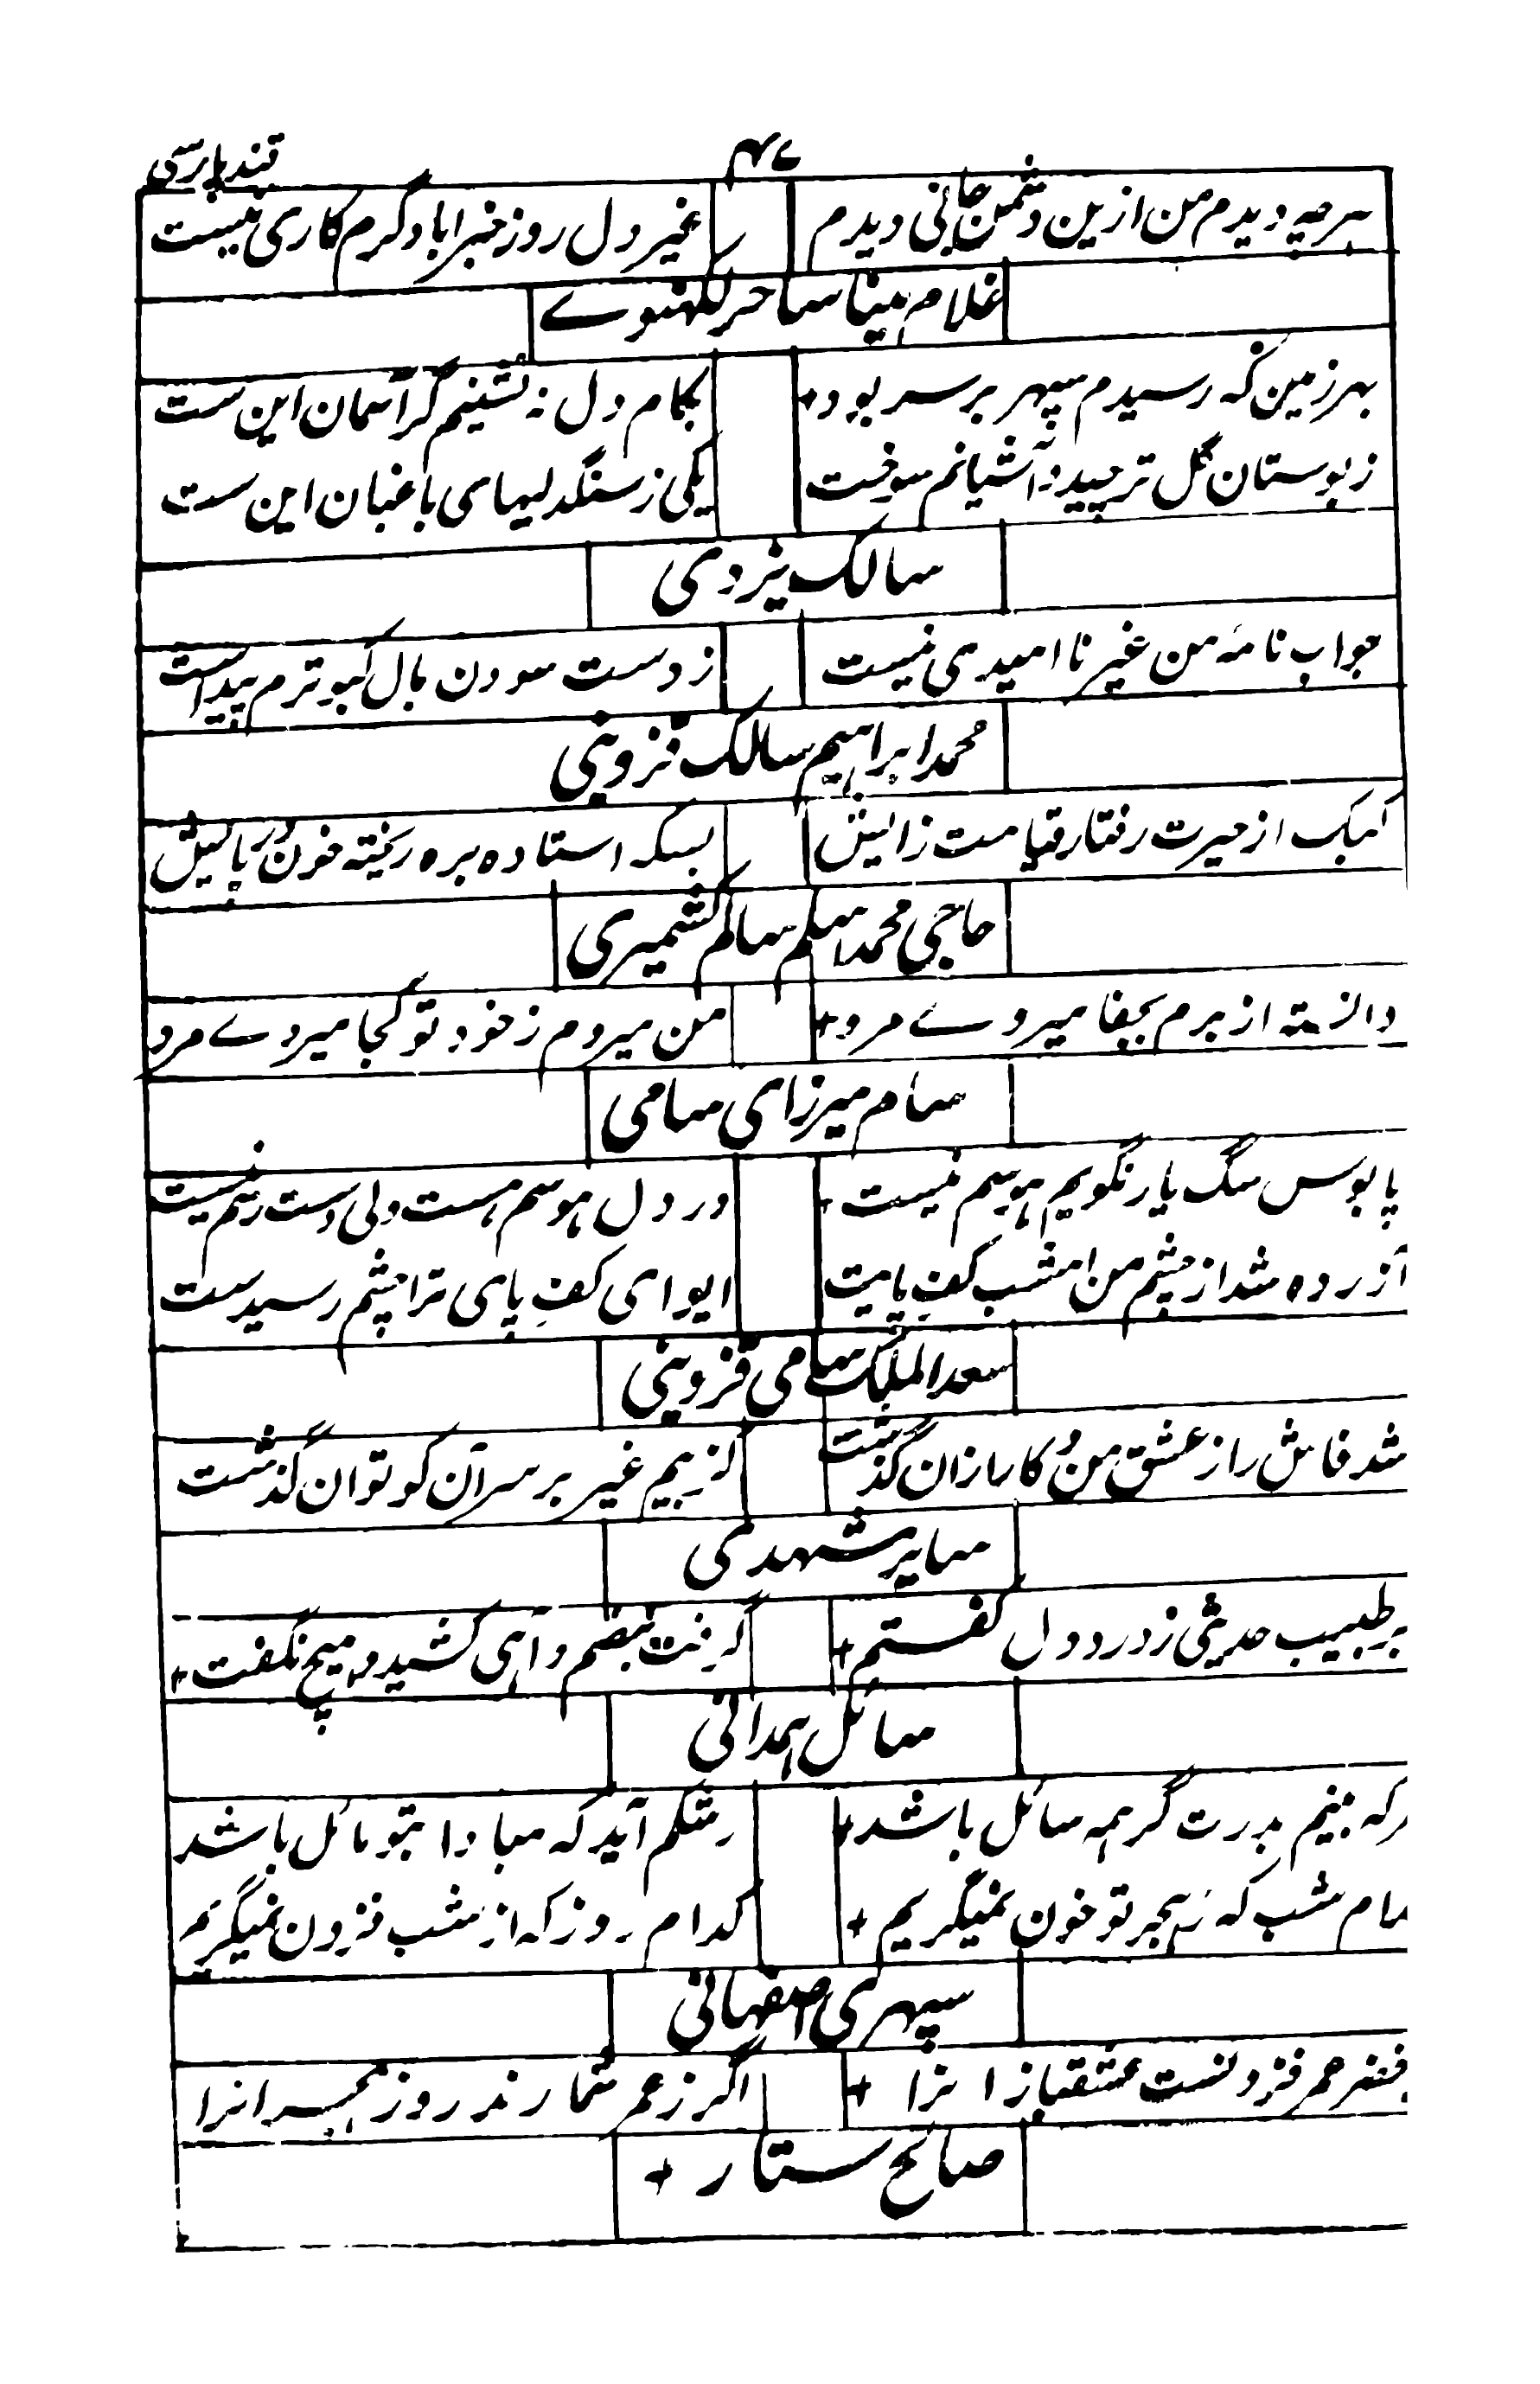 ۴۷
قند پارسی
هرچه دیدم من ازین دشمن جانی دیدم
غیر دل روز خبر اباد گرم کاری نیست
غلام مینا ساحر لکهنوے
بهر زمین که رسیدم سپهر بر سر بود +
بکام دل نه نشینم گر آسمان این ست
ز بوستان گل تر چید و آشیانم سوخت
یکی ز سنگدلیهای باغبان این ست
سالک یزدی
جواب نامهٔ من غیر نا امیدی نیست
ز دست سودن بال کبوترم پیداست
محمد ابراهیم سالک قزوینی
کبک از حیرت رفتار قیامت زایش
بسکه استاده بره ریخته خون در پایش
حاجی محمد اسلم سالم کشمیری
دانسته از برم بجفا میروے مرو +
من میروم ز خود تو کجا میروے مرو
سام میرزای سامی
پابوس سگ یار نگویم هوسم نیست +
در دل هوسم هست ولی دست رسم نیست
آزرده شد از چشم من امشب کف پایت
ایوای کف پای ترا چشم رسیدست
سعد الملک سامی قزوینی
شد فاش راز عشق من و کار ازان گذشت
کز بیم غیر بر سر آن کو توان گذشت
سایر مشهدی
بر طبیب حدیثی ز درد دل گفتم +
گرفت نبضم و آهی کشید و هیچ نگفت +
سائل همدانی
هرکه بینم بدرت گر همه سائل باشد +
رشکم آید که مبادا بتو مائل باشد
کدام شب که ز هجر تو خون نمیگریم +
کدام روز که از شب فزون نمیگریم
سپهری اصفهانی
ز خضر عمر فزونست عشقبازانرا +
اگر ز عمر شمارند روز هجرانرا
صالح ستار +